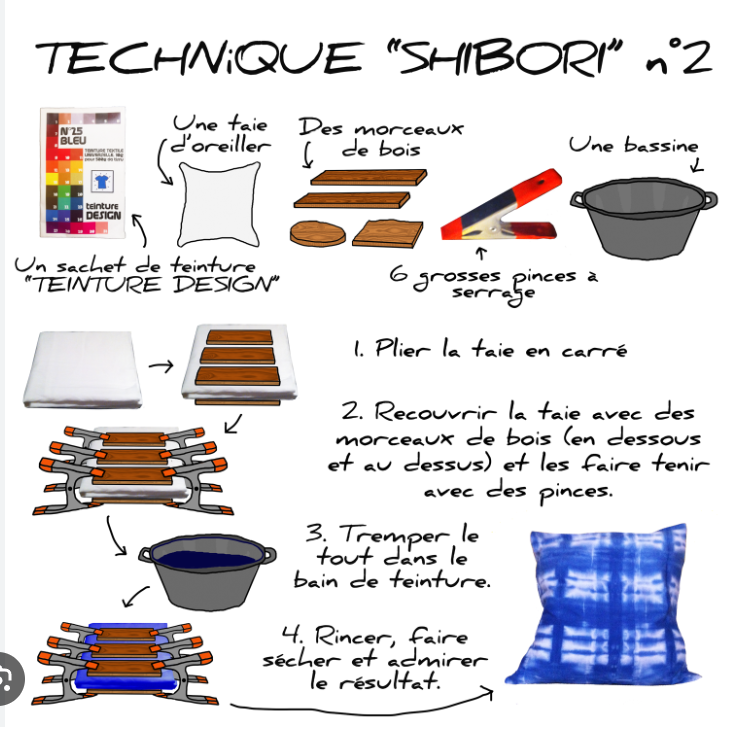 TECHNiQUE "SHIBORI" n°2
N°25
BLEU
TEINTURE TEXTILE
UNIVERSELLE,
teinture
DESIGN
Une taie
d'oreiller
Des morceaux
de bois
Une bassine
Un sachet de teinture
"TEINTURE DESIGN"
6 grosses pinces à
serrage
1. Plier la taie en carré
2. Recouvrir la taie avec des
morceaux de bois (en dessous
et au dessus) et les faire tenir
avec des pinces.
3. Tremper le
tout dans le
bain de teinture.
4. Rincer, faire
sécher et admirer
le résultat.